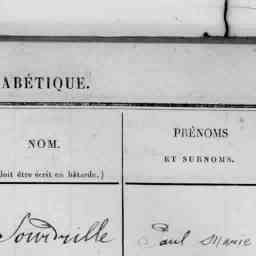 ABÉTIQUE.
NOM.
doit être écrit en bâtarde.)
PRÉNOMS
ET SURNOMS.
Sourdrille
Paul Marie